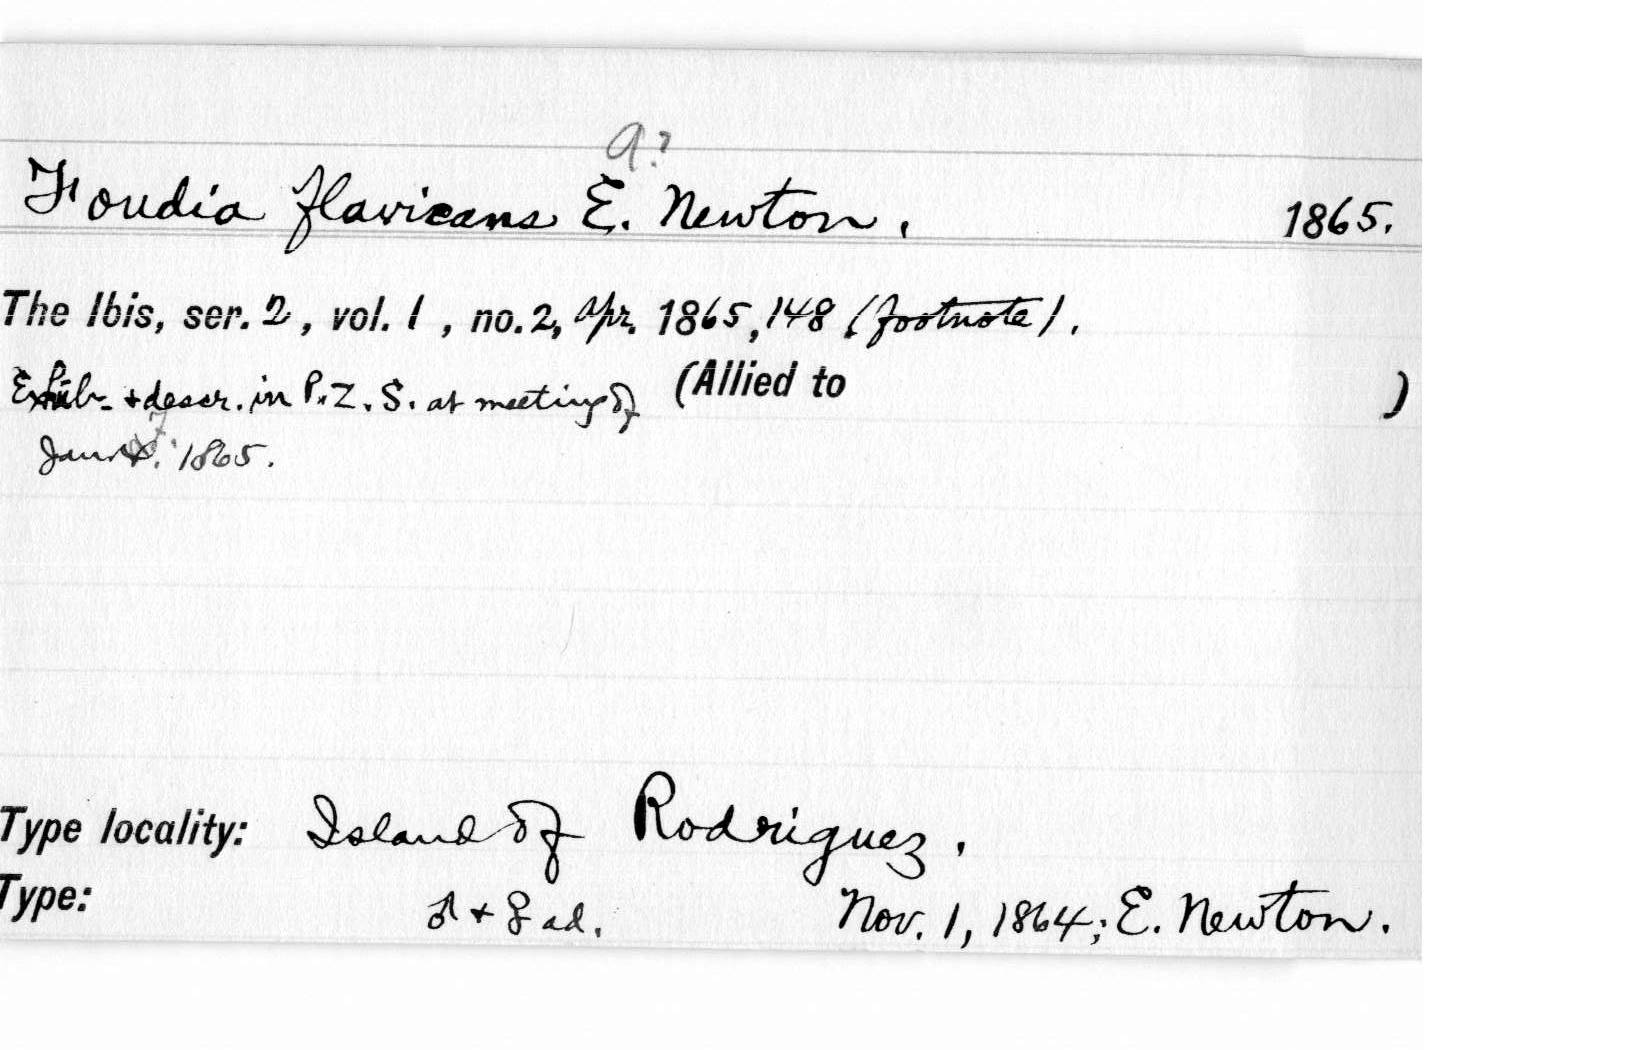 A?
Foudia flavicans E. Newton. 1865.
The Ibis, ser. 2, vol. 1, no. 2, Apr. 1865, 148 (footnote).
Exhib. + descr. in P.Z.S. at meeting of (Allied to )
Jan. 1865.
Type locality: Island of Rodriguez.
Type: ♂ + ♀ ad. Nov. 1, 1864; E. Newton.